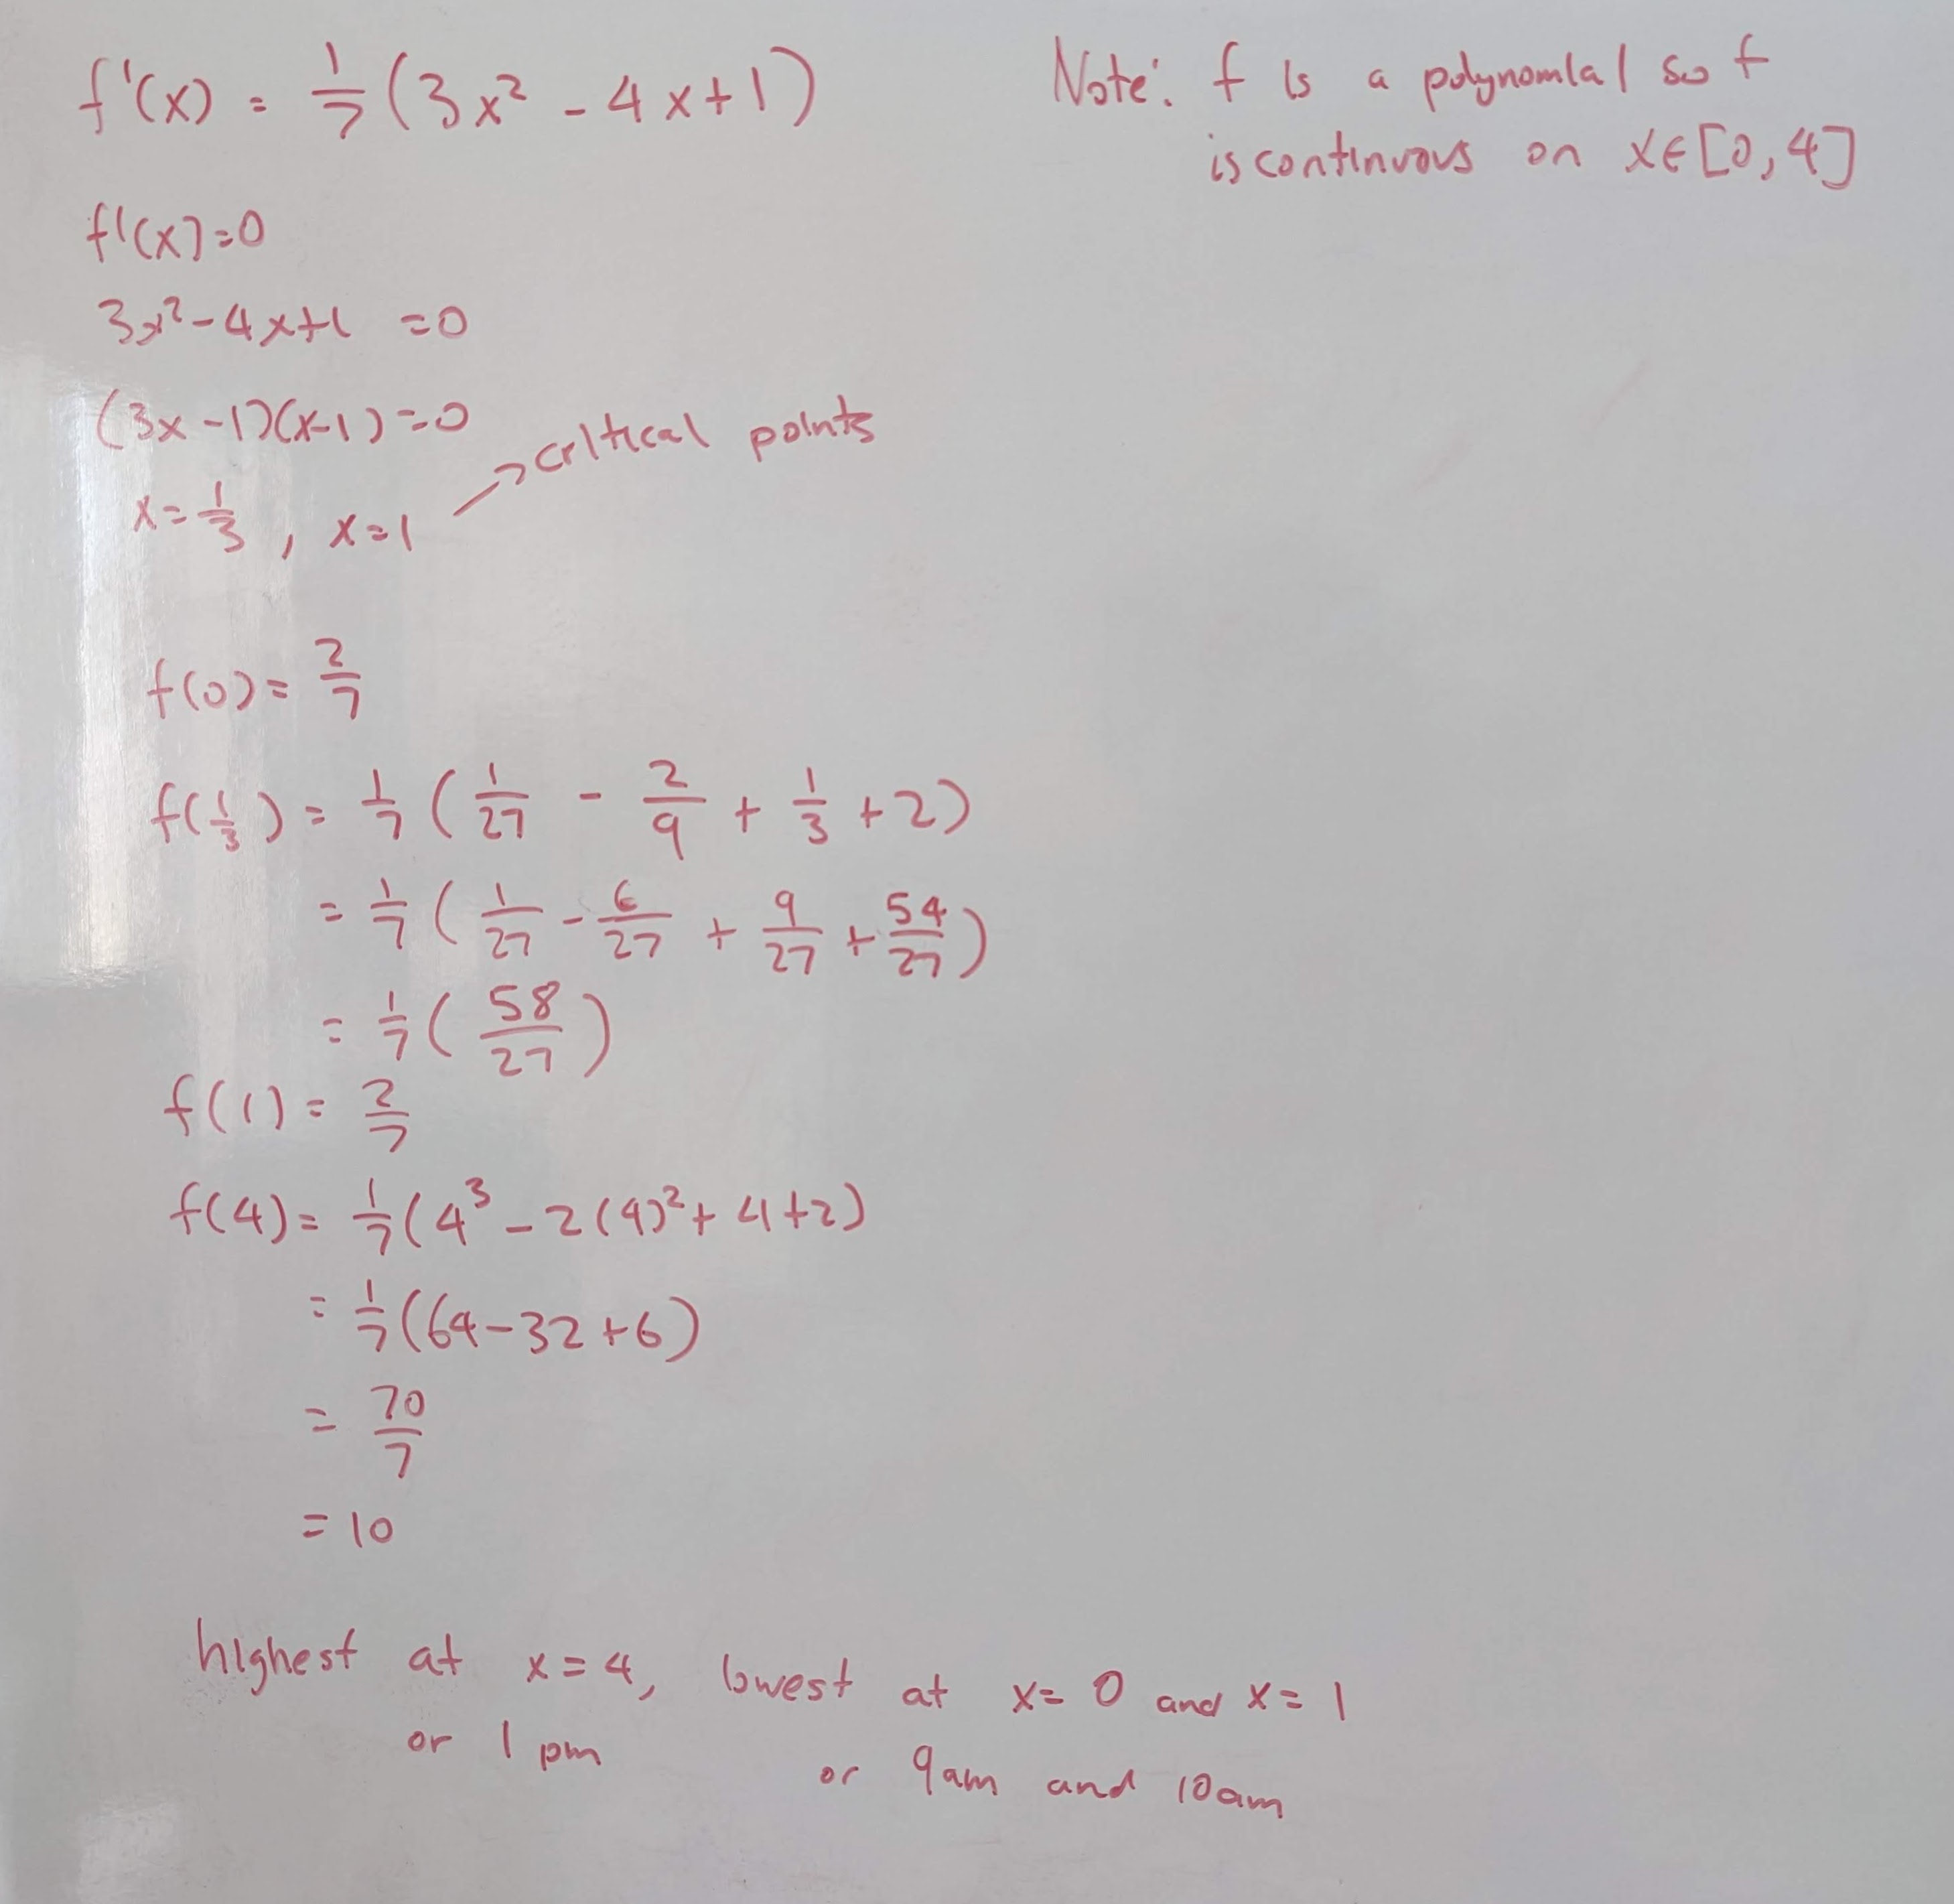 f'(x) = 1/7 (3x² - 4x+1)
Note: f is a polynomial so f
is continuous on x∈[0,4]
f'(x)=0
3x²-4x+1 =0
(3x-1)(x-1)=0
→critical points
x=1/3, x=1
f(0)= 2/7
f(1/3) = 1/7 (1/27 - 2/9 + 1/3 +2)
= 1/7 (1/27 - 6/27 + 9/27 + 54/27)
= 1/7 (58/27)
f(1) = 2/7
f(4)= 1/7 (4³ - 2(4)² + 4+2)
= 1/7 (64-32+6)
= 70/7
= 10
highest at x=4, lowest at x= 0 and x= 1
or 1 pm or 9am and 10am